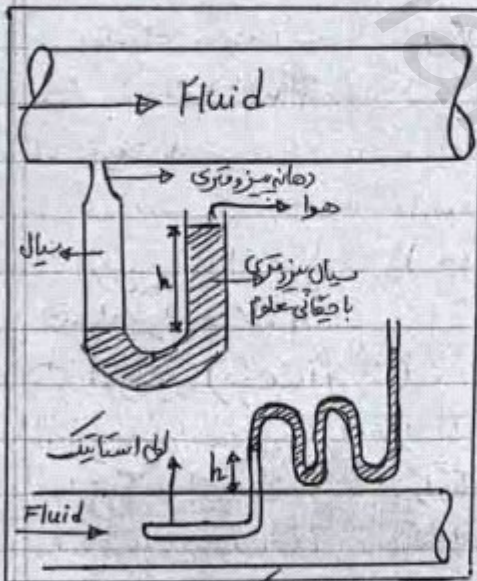 Fluid
دهانه پیزومتری
هوا
سیال
h
سیال پیزومتری
با چگالی معلوم
لوله استاتیک
h
Fluid